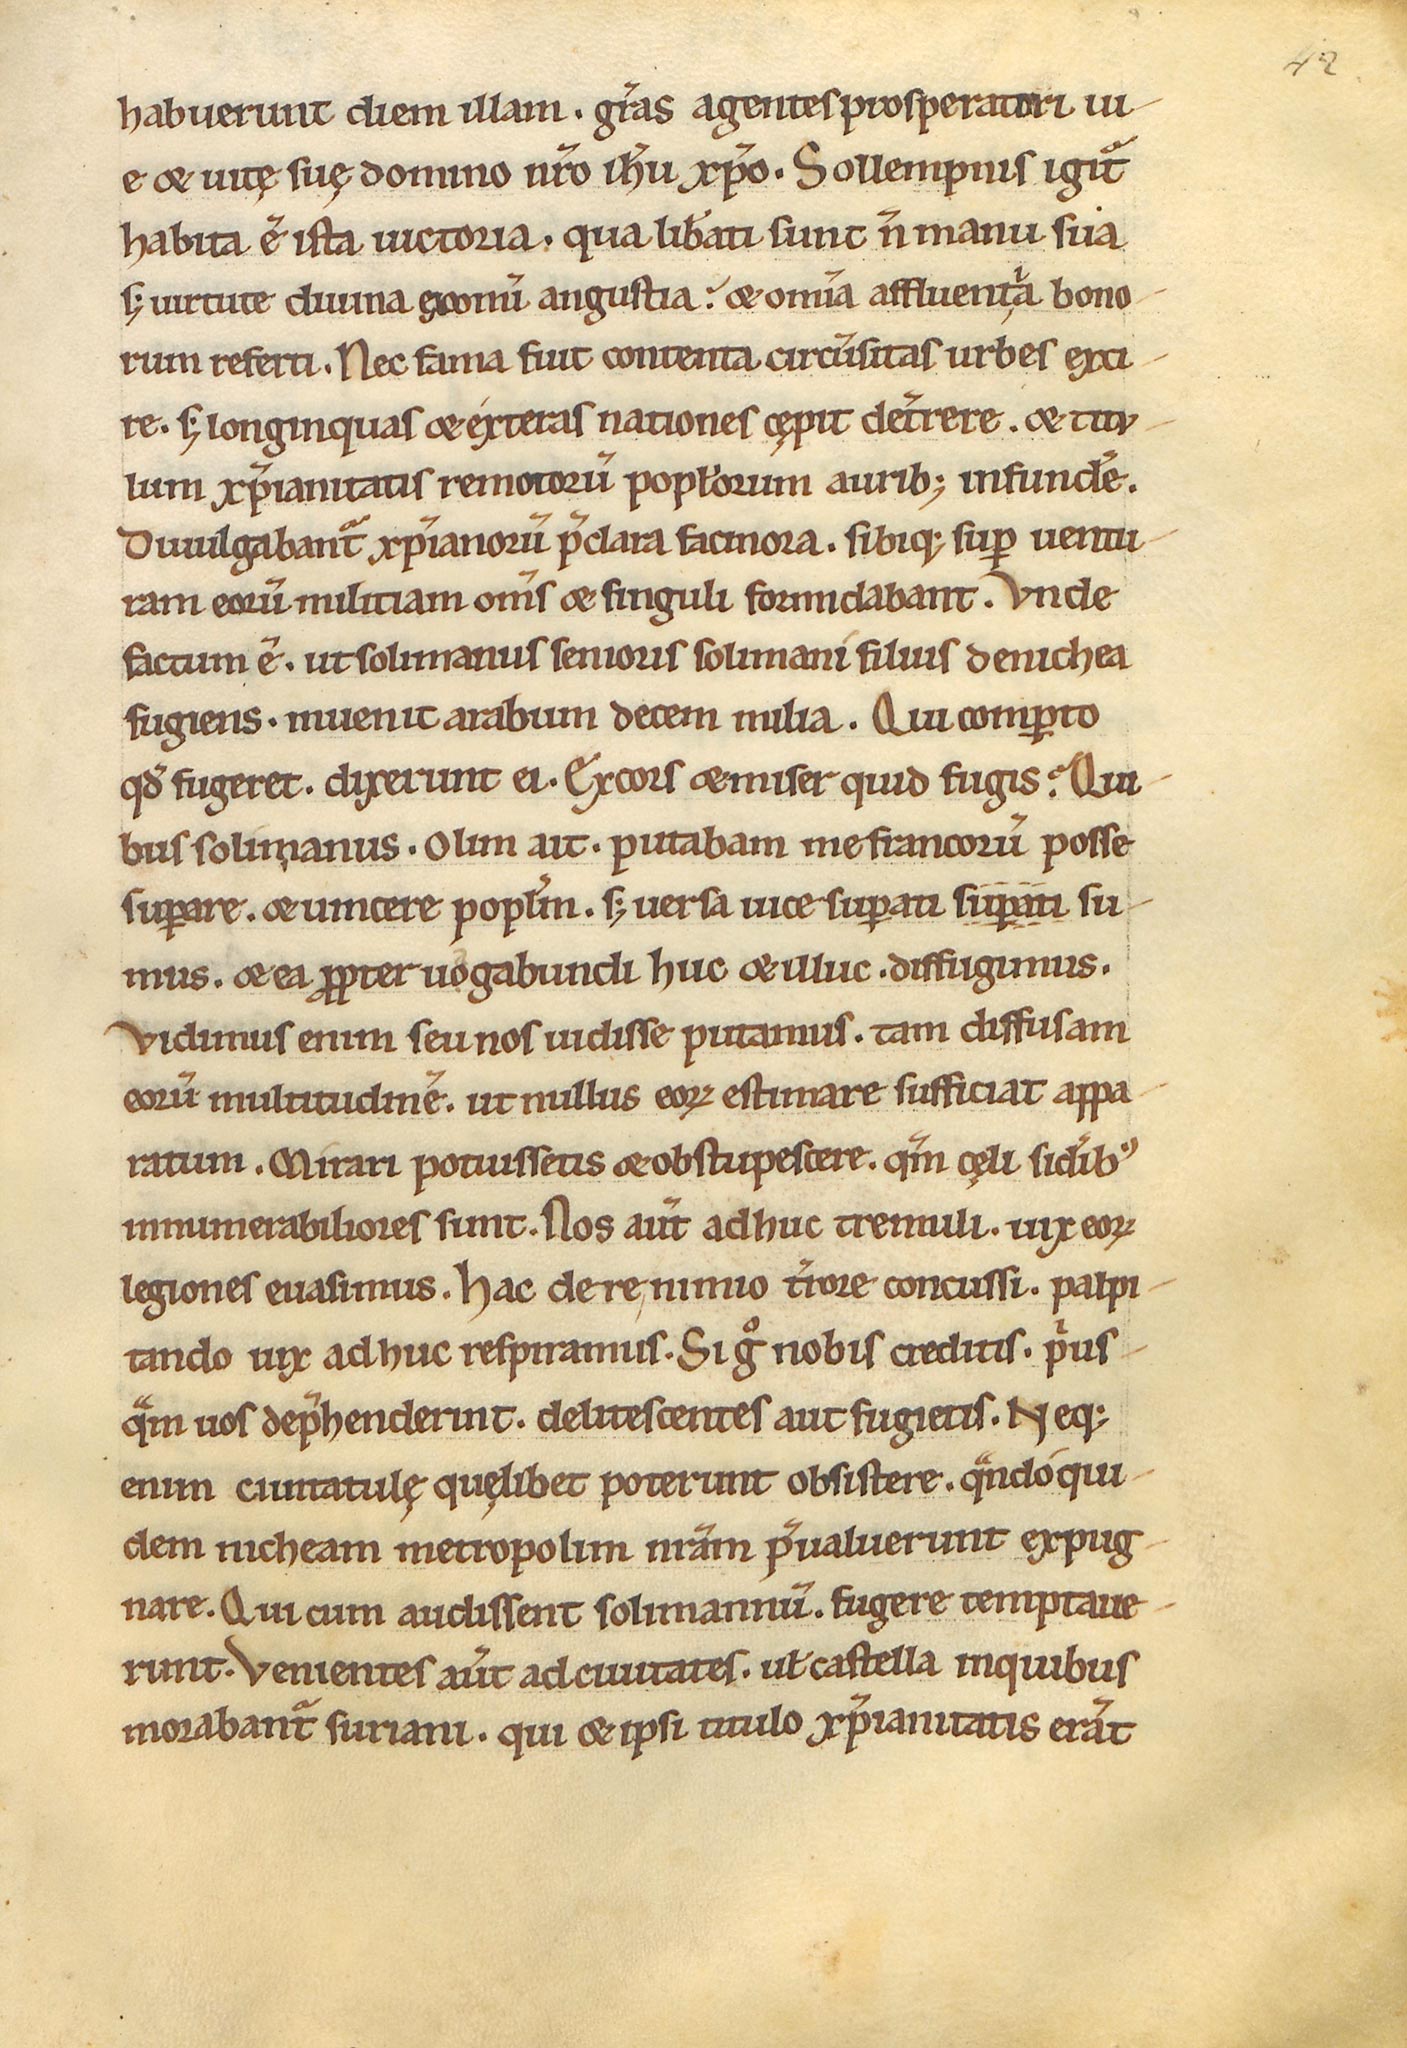 42
habuerunt diem illam. gr̃as agentes prosperatori ui
e & uitę suę domino nr̃o ih̃u xp̃o. Sollempnis igit᷑
habita ẽ ista uictoria. qua lib̃ati sunt ñ manu sua
s; uirtute diuina ęconũ angustia? & om̃ia affluentia bono
rum referti. Nec fama fuit contenta circũsitas urbes exci
re. s; longinquas & éxteras nationes cępit det̃rere. & titu
lum xp̃ianitatis remotorũ popl̃orum aurib; infundẽ.
Diuulgabant᷑ xp̃ianorũ p̃clara facinora. sibiq; suꝑ uentu
ram eorũ militiam om̃s & singuli formidabant. Vnde
factum ẽ. ut solimanus senioris solimani filius denichea
fugiens. inuenit arabum decem milia. Qui comꝑto
qđ fugeret. dixerunt ei. Excors & miser quid fugis? Qui
bus solimanus. Olim ait. putabam me francorũ posse
suꝑare. & uincere popl̃m. s; uersa uice suꝑati suꝑati su
mus. & ea ꝓpter uagabundi huc & illuc. diffugimus.
Vidimus enim seu nos uidisse putamus. tam diffusam
eorũ multitudinẽ. ut nullus eoꝝ estimare sufficiat appa
ratum. Mirari potuissetis & obstupescere. qm̃ cęli sid̃ibꝰ
innumerabiliores sunt. Nos aut̃ adhuc tremuli. uix eoꝝ
legiones euasimus. Hac de re nimio t̃rore concussi. palpi
tando uix adhuc respiramus. Si gͦ nobis creditis. pͥus
qᵃm uos dep̃henderint. delitescentes aut fugietis. Neq;
enim ciuitatulę quęlibet poterunt obsistere. qᵃndoqui
dem nicheam metropolim nr̃am p̃ualuerunt expug
nare. Qui cum audissent solimannũ. fugere temptaue
runt. Venientes aut̃ ad ciuitates. ul̃ castella in quibus
morabant᷑ suriani. qui & ipsi titulo xp̃ianitatis erãt